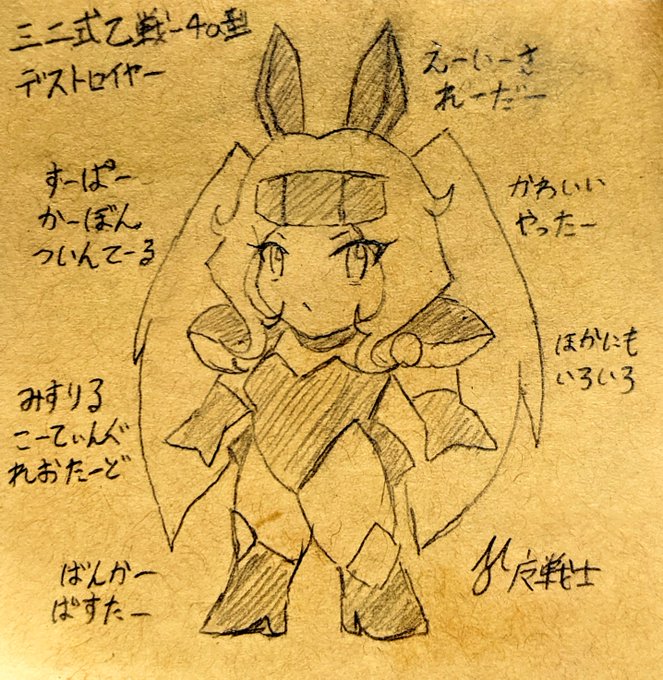 三二式乙戦-40型
デストロイヤー
えーいーさ
れーだー
すーぱー
かーぼん
ついんてーる
かわいい
やったー
ほかにも
いろいろ
みすりる
こーてぃんぐ
れおたーど
ばんかー
ばすたー
戦士